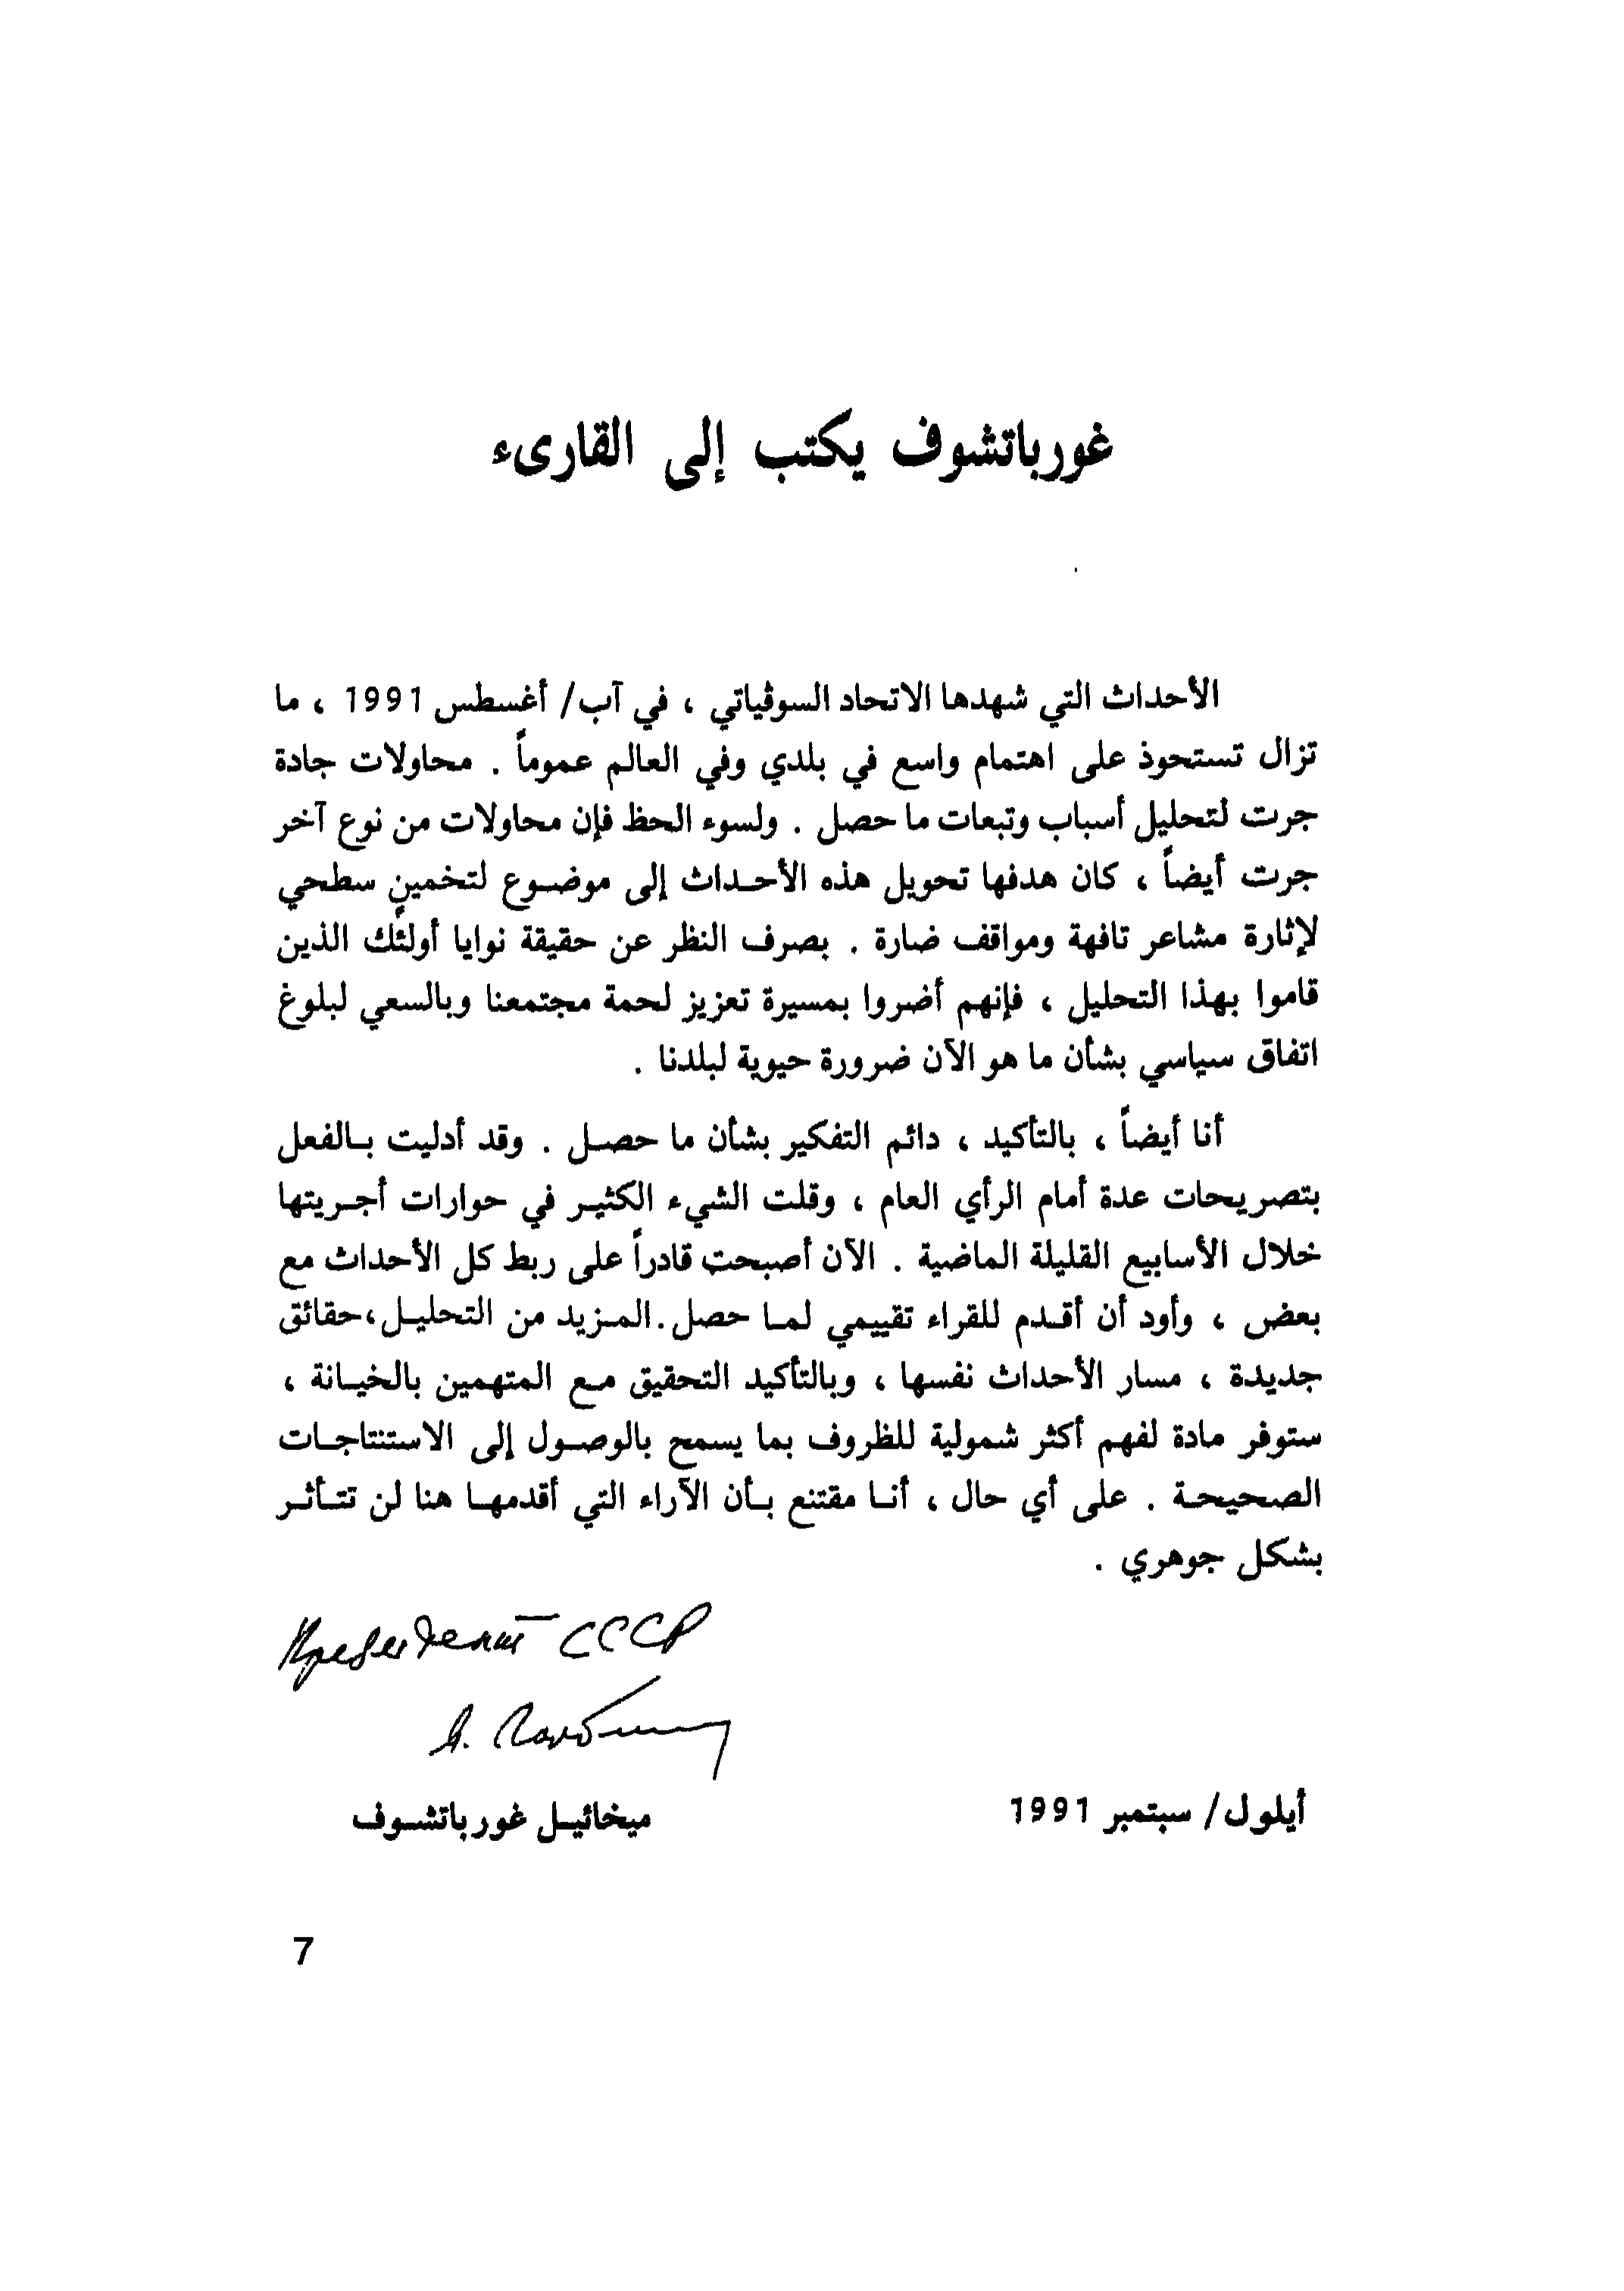 غورباتشوف يكتب إلى القارىء
الأحداث التي شهدها الاتحاد السوڤياتي ، في آب/ أغسطس 1991 ، ما
تزال تستحوذ على اهتمام واسع في بلدي وفي العالم عموماً . محاولات جادة
جرت لتحليل أسباب وتبعات ما حصل . ولسوء الحظ فإن محاولات من نوع آخر
جرت أيضاً ، كان هدفها تحويل هذه الأحـداث إلى موضـوع لتخمينٍ سطحي
لإثارة مشاعر تافهة ومواقف ضارة . بصرف النظر عن حقيقة نوايا أولئك الذين
قاموا بهذا التحليل ، فإنهم أضروا بمسيرة تعزيز لحمة مجتمعنا وبالسعي لبلوغ
اتفاق سياسي بشأن ما هو الآن ضرورة حيوية لبلدنا .
أنا أيضاً ، بالتأكيد ، دائم التفكير بشأن ما حصـل . وقد أدليت بـالفعل
بتصريحات عدة أمام الرأي العام ، وقلت الشيء الكثيـر في حوارات أجـريتها
خلال الأسابيع القليلة الماضية . الآن أصبحت قادراً على ربط كل الأحداث مع
بعض ، وأود أن أقـدم للقراء تقييمي لمـا حصل.المـزيد من التحليـل،حقائق
جديدة ، مسار الأحداث نفسها ، وبالتأكيد التحقيق مـع المتهمين بالخيـانة ،
ستوفر مادة لفهم أكثر شمولية للظروف بما يسمح بالوصـول إلى الاستنتاجـات
الصحيحـة . على أي حال ، أنـا مقتنع بـأن الآراء التي أقدمهـا هنا لن تتـأثـر
بشكل جوهري .
Президент СССР
М. Горбачев
أيلول/ سبتمبر 1991
ميخائيـل غورباتشـوف
7